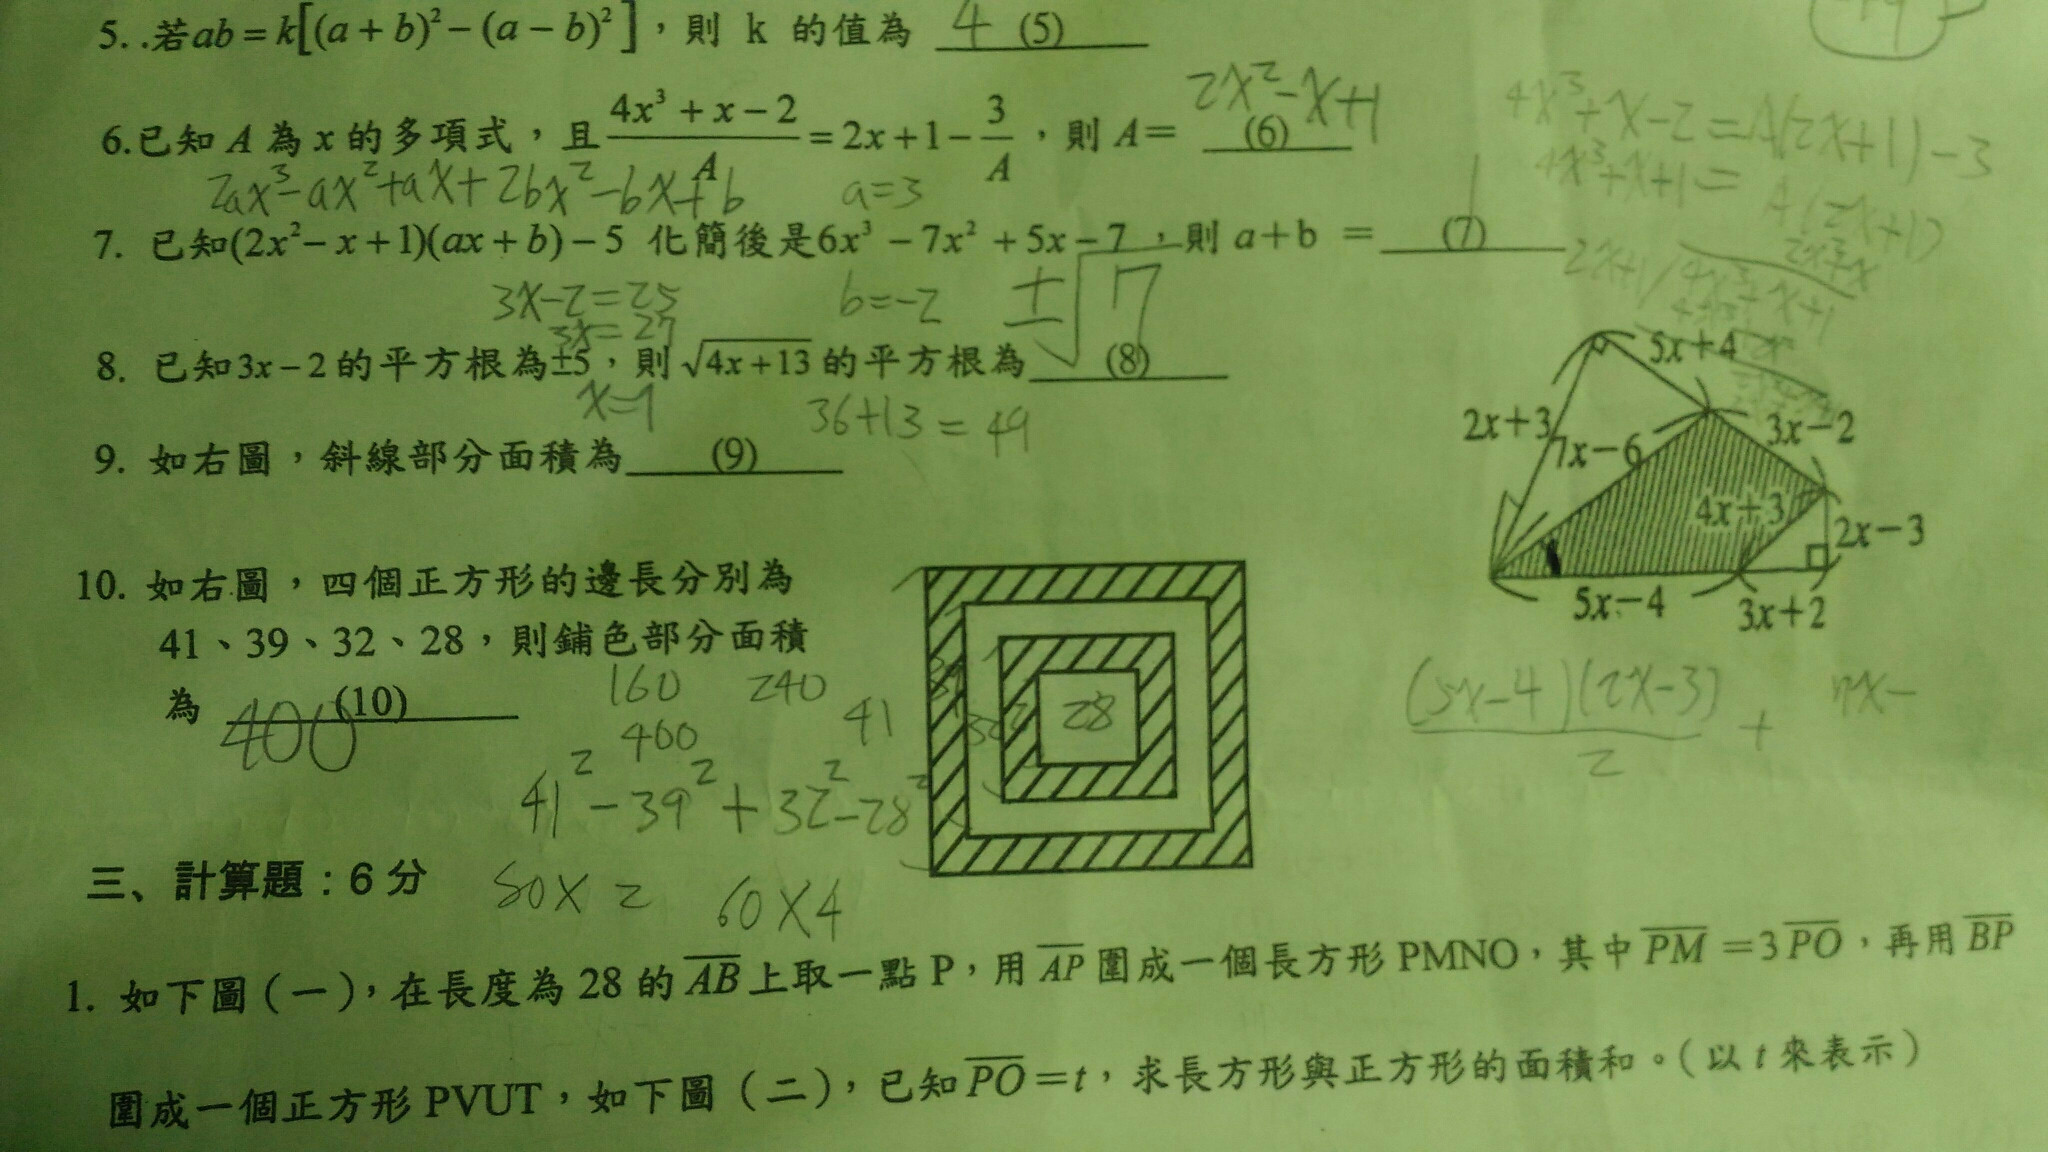 5. .若ab = k[(a + b)² − (a − b)²]，則 k 的值為 4 (5)
6.已知 A 為 x 的多項式，且 (4x³ + x − 2)/A = 2x + 1 − 3/A，則 A＝ 2x²−x+1 (6)
4x³+x−2=A(2x+1)−3
4x³+x+1=
A(2x+1)
2ax³−ax²+ax+2bx²−bx+b a=3
7. 已知(2x²− x + 1)(ax + b) − 5 化簡後是6x³ − 7x² + 5x − 7，則 a+b ＝ 1 (7)
3x−2=25 b=−2
3x=27
8. 已知3x − 2的平方根為±5，則√4x+13的平方根為 ±√7 (8)
x=9 36+13=49
9. 如右圖，斜線部分面積為 (9)
5x+4
2x+3
7x−6
3x−2
4x+3
2x−3
5x−4
3x+2
(5x−4)(2x−3)
2
+
10. 如右圖，四個正方形的邊長分別為
41、39、32、28，則鋪色部分面積
為 400 (10)
160 240
400
41
39
32
28
41²−39²+32²−28²
80×2 60×4
三、計算題：6 分
1. 如下圖 (一)，在長度為 28 的 AB 上取一點 P，用 AP 圍成一個長方形 PMNO，其中 PM ＝3 PO，再用 BP
圍成一個正方形 PVUT，如下圖 (二)，已知 PO＝t，求長方形與正方形的面積和。(以 t 來表示)